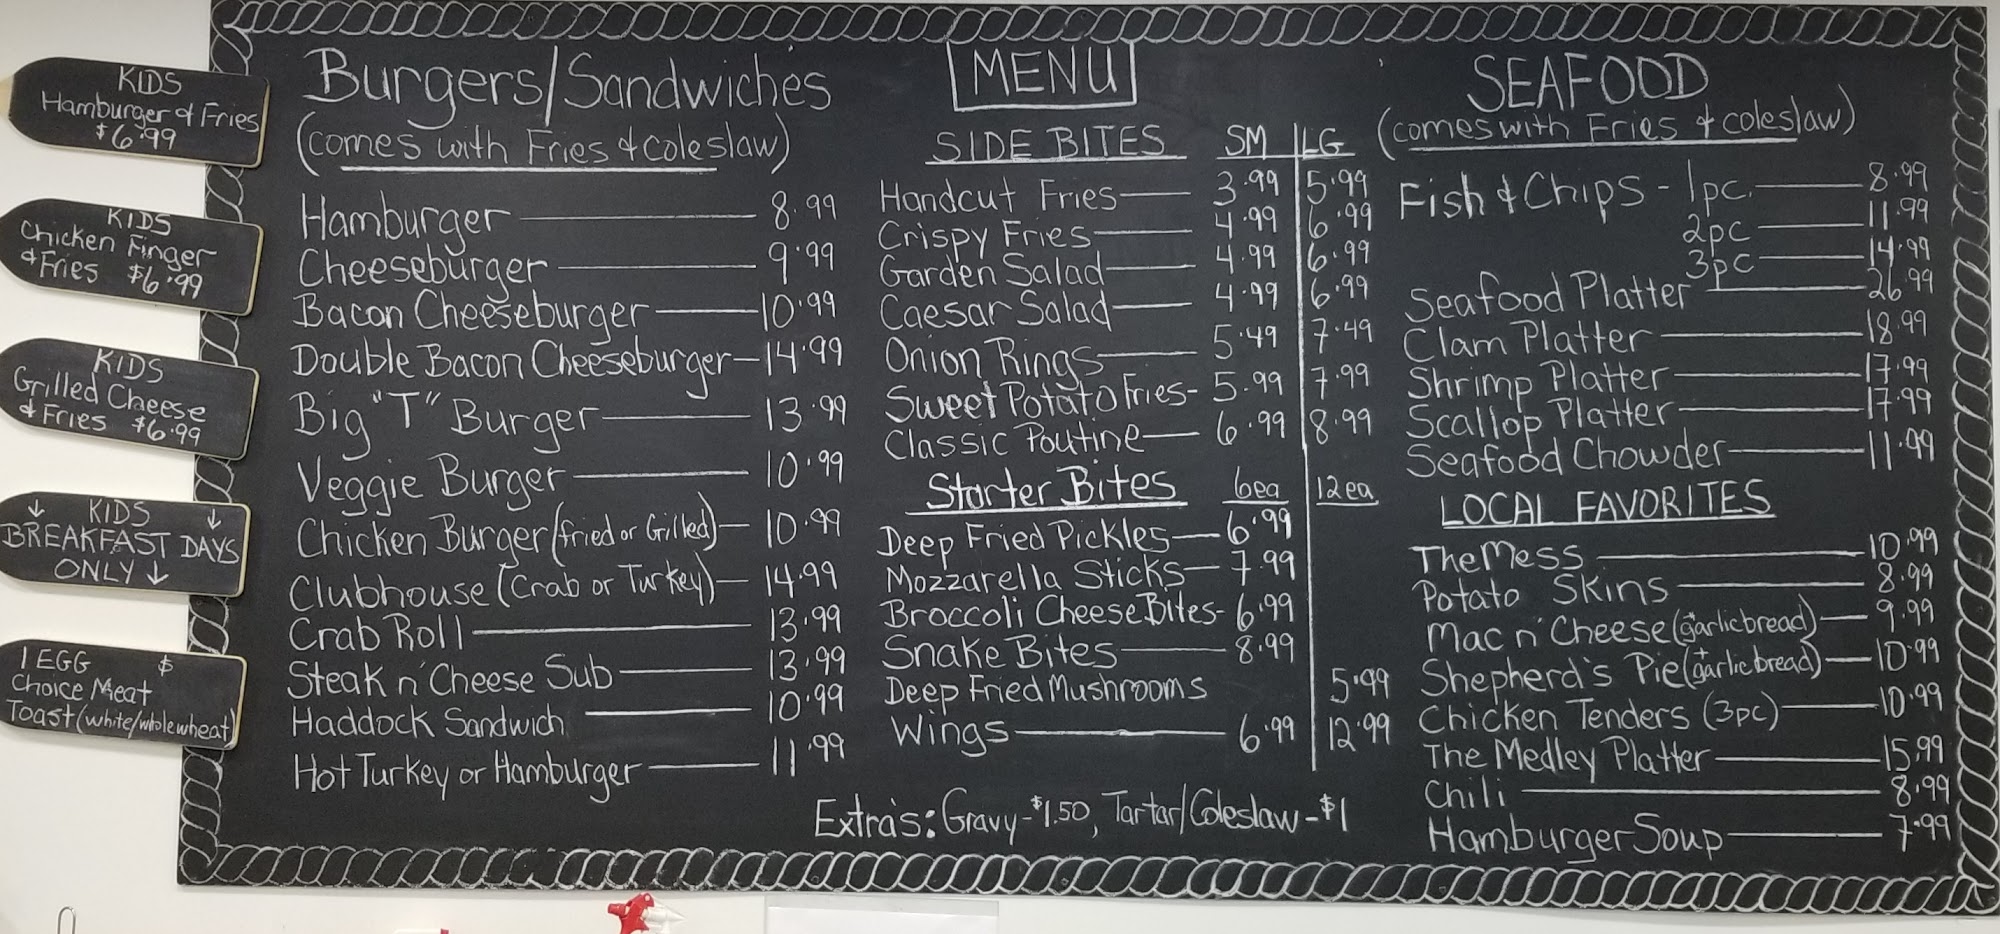 KIDS
Hamburger & Fries
$6.99
KIDS
Chicken Finger
& Fries $6.99
KIDS
Grilled Cheese
& Fries $6.99
↓ KIDS ↓
BREAKFAST DAYS
ONLY ↓
1 EGG $
Choice Meat
Toast (white/wholewheat)
Burgers/Sandwiches
(comes with Fries & coleslaw)
Hamburger 8.99
Cheeseburger 9.99
Bacon Cheeseburger 10.99
Double Bacon Cheeseburger 14.99
Big "T" Burger 13.99
Veggie Burger 10.99
Chicken Burger (fried or Grilled) 10.99
Clubhouse (Crab or Turkey) 14.99
Crab Roll 13.99
Steak n' Cheese Sub 13.99
Haddock Sandwich 10.99
Hot Turkey or Hamburger 11.99
MENU
SIDE BITES SM LG
Handcut Fries 3.99 5.99
Crispy Fries 4.99 6.99
Garden Salad 4.99 6.99
Caesar Salad 4.99 6.99
Onion Rings 5.49 7.49
Sweet Potato Fries 5.99 7.99
Classic Poutine 6.99 8.99
Starter Bites 6ea 12ea
Deep Fried Pickles 6.99
Mozzarella Sticks 7.99
Broccoli Cheese Bites 6.99
Snake Bites 8.99
Deep Fried Mushrooms 5.99
Wings 6.99 12.99
Extra's: Gravy-$1.50, Tartar/Coleslaw-$1
SEAFOOD
(comes with Fries & coleslaw)
Fish & Chips - 1pc. 8.99
2pc 11.99
3pc 14.99
Seafood Platter 26.99
Clam Platter 18.99
Shrimp Platter 17.99
Scallop Platter 17.99
Seafood Chowder 11.99
LOCAL FAVORITES
The Mess 10.99
Potato Skins 8.99
Mac n' Cheese (+garlic bread) 9.99
Shepherd's Pie (+garlic bread) 10.99
Chicken Tenders (3pc) 10.99
The Medley Platter 15.99
Chili 8.99
Hamburger Soup 7.99